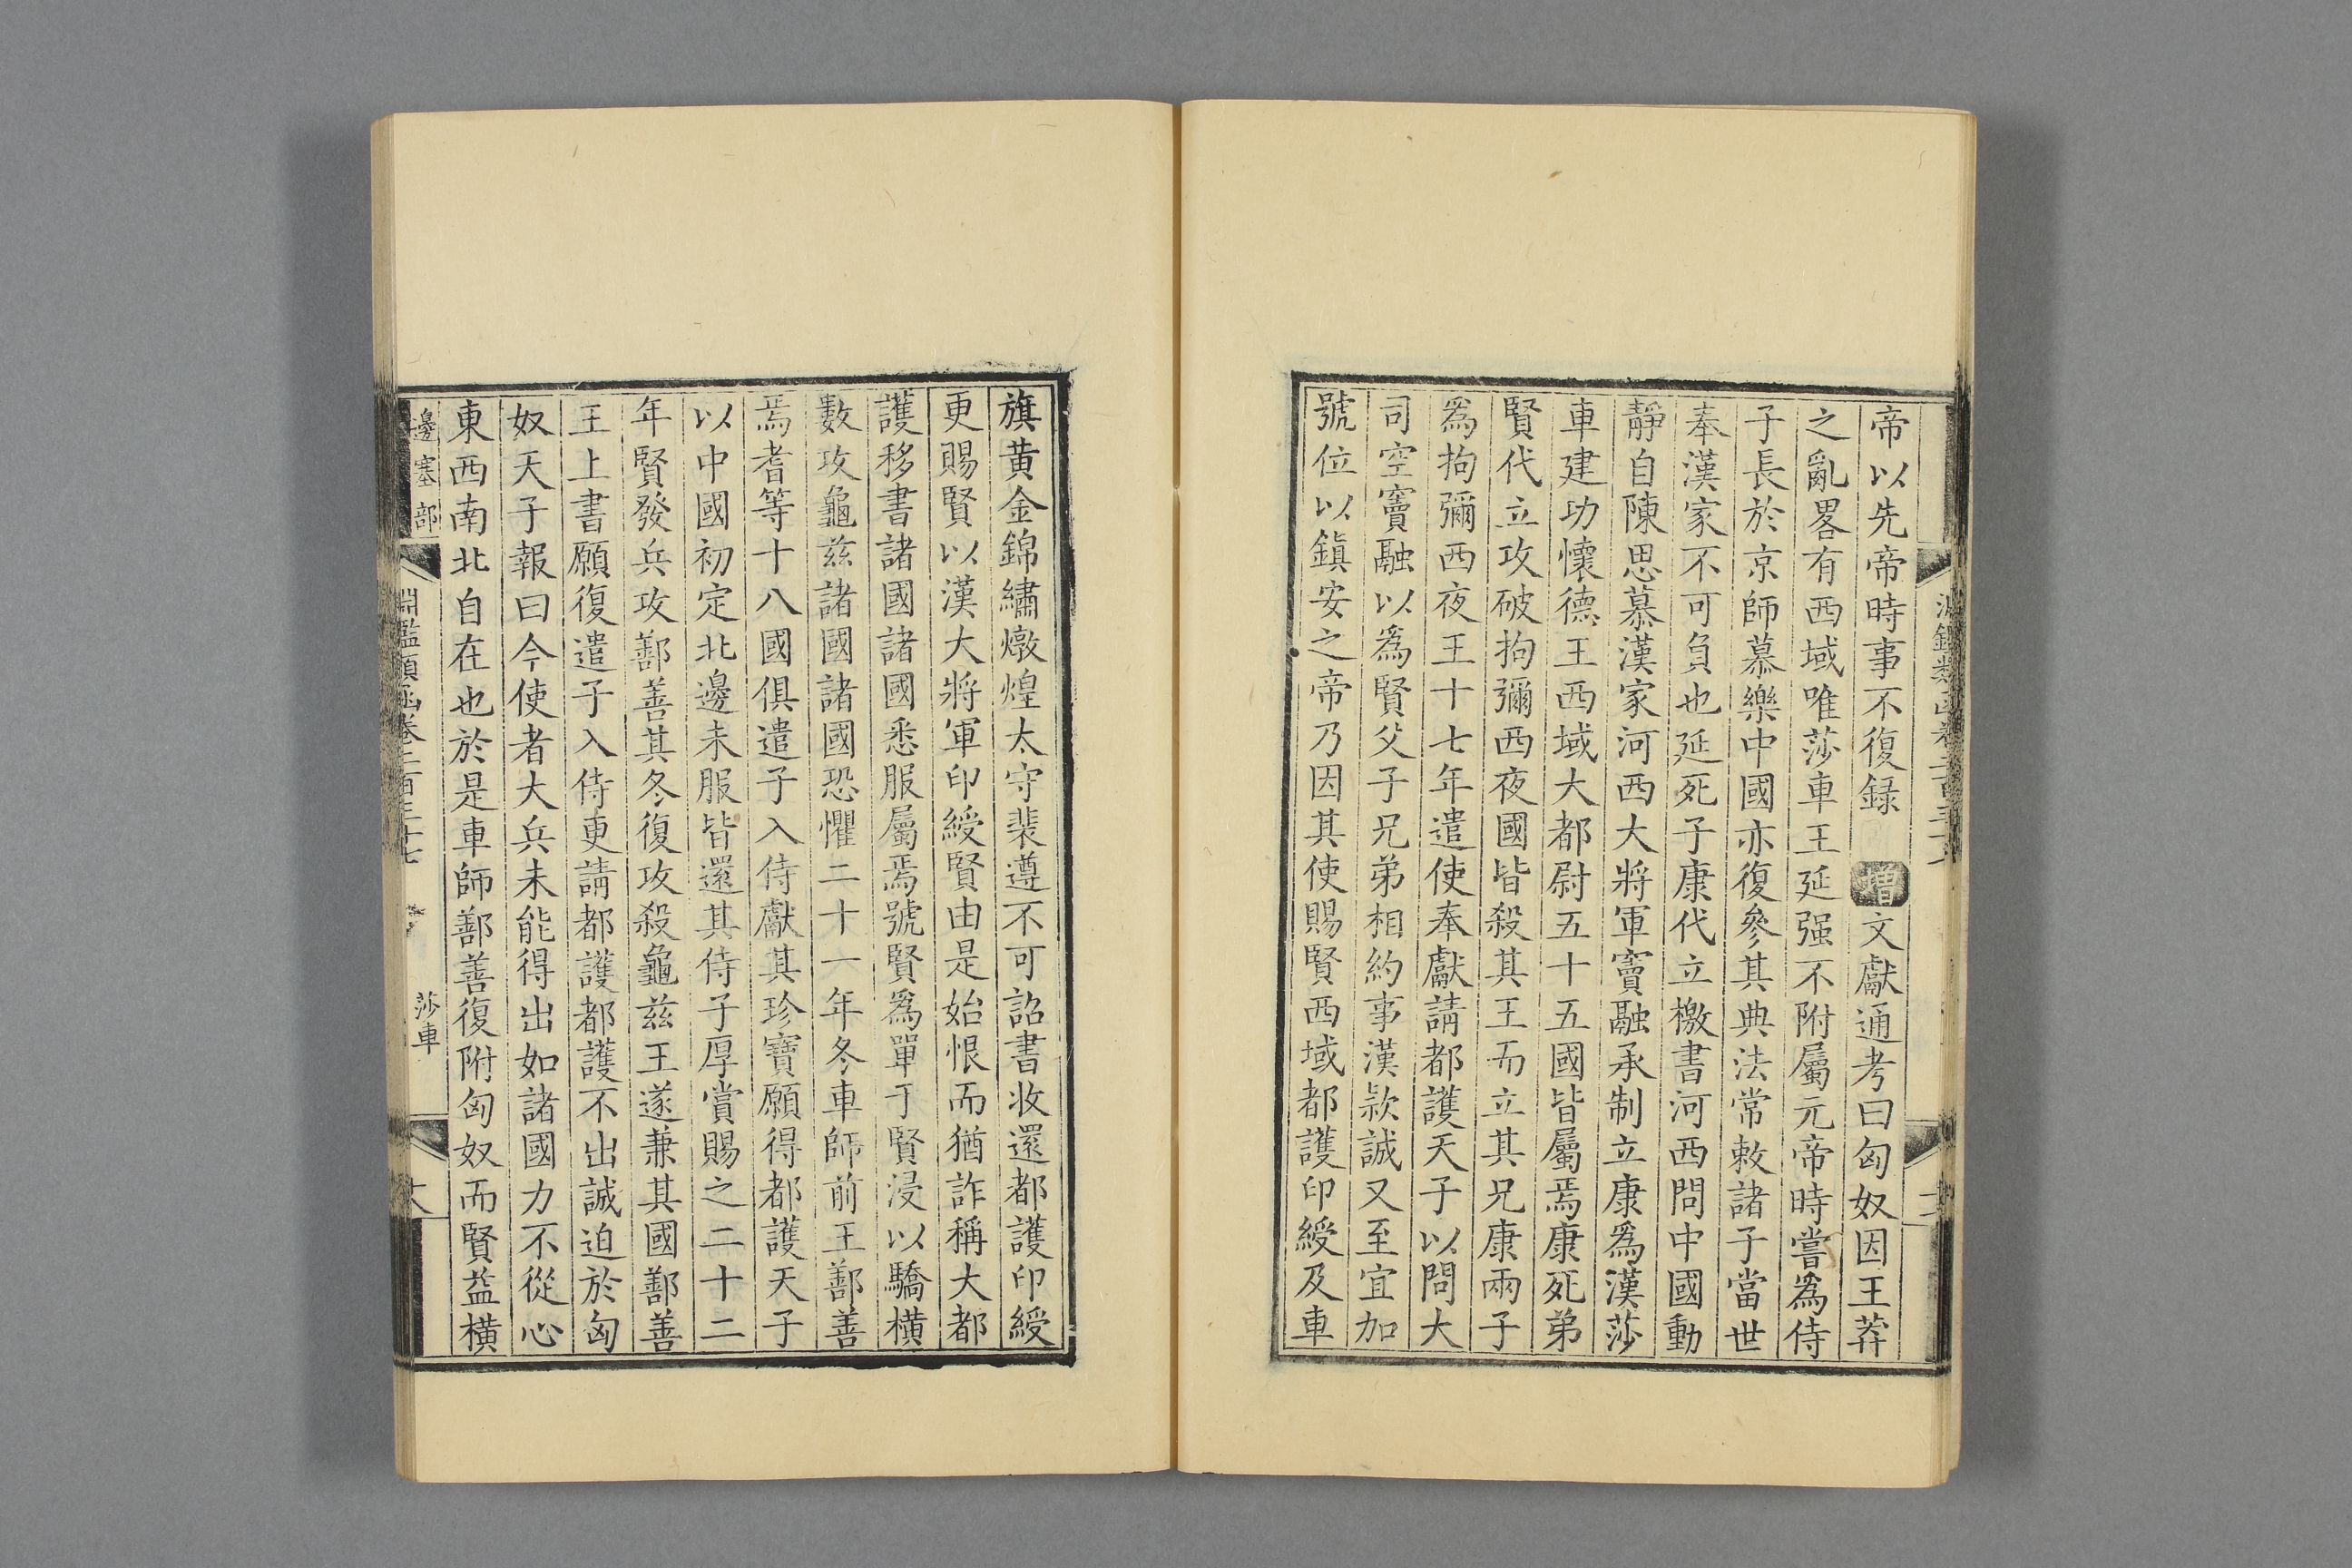 帝以先帝時事不復録 增文獻通考曰匈奴因王莽
之亂畧有西域唯莎車王延强不附屬元帝時嘗爲侍
子長於京師慕樂中國亦復參其典法常敕諸子當世
奉漢家不可負也延死子康代立檄書河西問中國動
靜自陳思慕漢家河西大將軍竇融承制立康爲漢莎
車建功懷德王西域大都尉五十五國皆屬焉康死弟
賢代立攻破拘彌西夜國皆殺其王而立其兄康兩子
爲拘彌西夜王十七年遣使奉獻請都護天子以問大
司空竇融以爲賢父子兄弟相約事漢款誠又至宜加
號位以鎭安之帝乃因其使賜賢西域都護印綬及車
旗黃金錦繡燉煌太守裴遵不可詔書收還都護印綬
更賜賢以漢大將軍印綬賢由是始恨而猶詐稱大都
護移書諸國諸國悉服屬焉號賢爲單于賢浸以驕橫
數攻龜茲諸國諸國恐懼二十一年冬車師前王鄯善
焉耆等十八國俱遣子入侍獻其珍寶願得都護天子
以中國初定北邊未服皆還其侍子厚賞賜之二十二
年賢發兵攻鄯善其冬復攻殺龜茲王遂兼其國鄯善
王上書願復遣子入侍更請都護都護不出誠迫於匈
奴天子報曰今使者大兵未能得出如諸國力不從心
東西南北自在也於是車師鄯善復附匈奴而賢益橫
邊塞部
淵鑑類函卷二百三十七 莎車